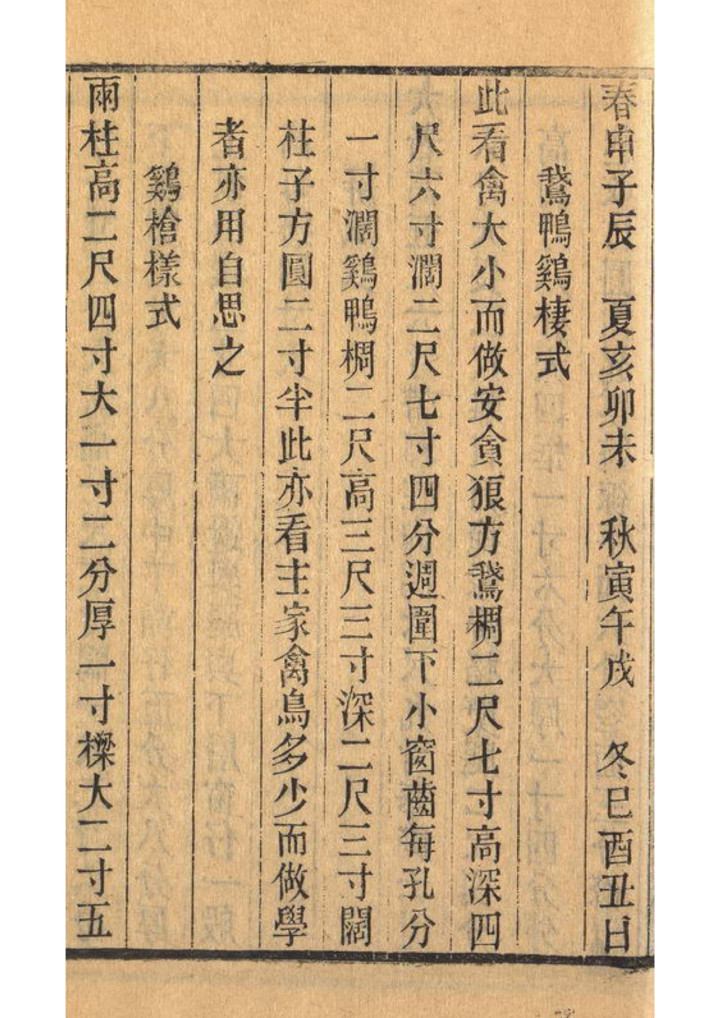 春申子辰 夏亥卯未 秋寅午戌 冬巳酉丑日
鵞鴨鷄棲式
此看禽大小而做安貪狼方鵞椆二尺七寸高深四
尺六寸濶二尺七寸四分週圍下小窗齒每孔分
一寸濶鷄鴨椆二尺高三尺三寸深二尺三寸闊
柱子方圓二寸半此亦看主家禽鳥多少而做學
者亦用自思之
鷄槍樣式
兩柱高二尺四寸大一寸二分厚一寸樑大二寸五